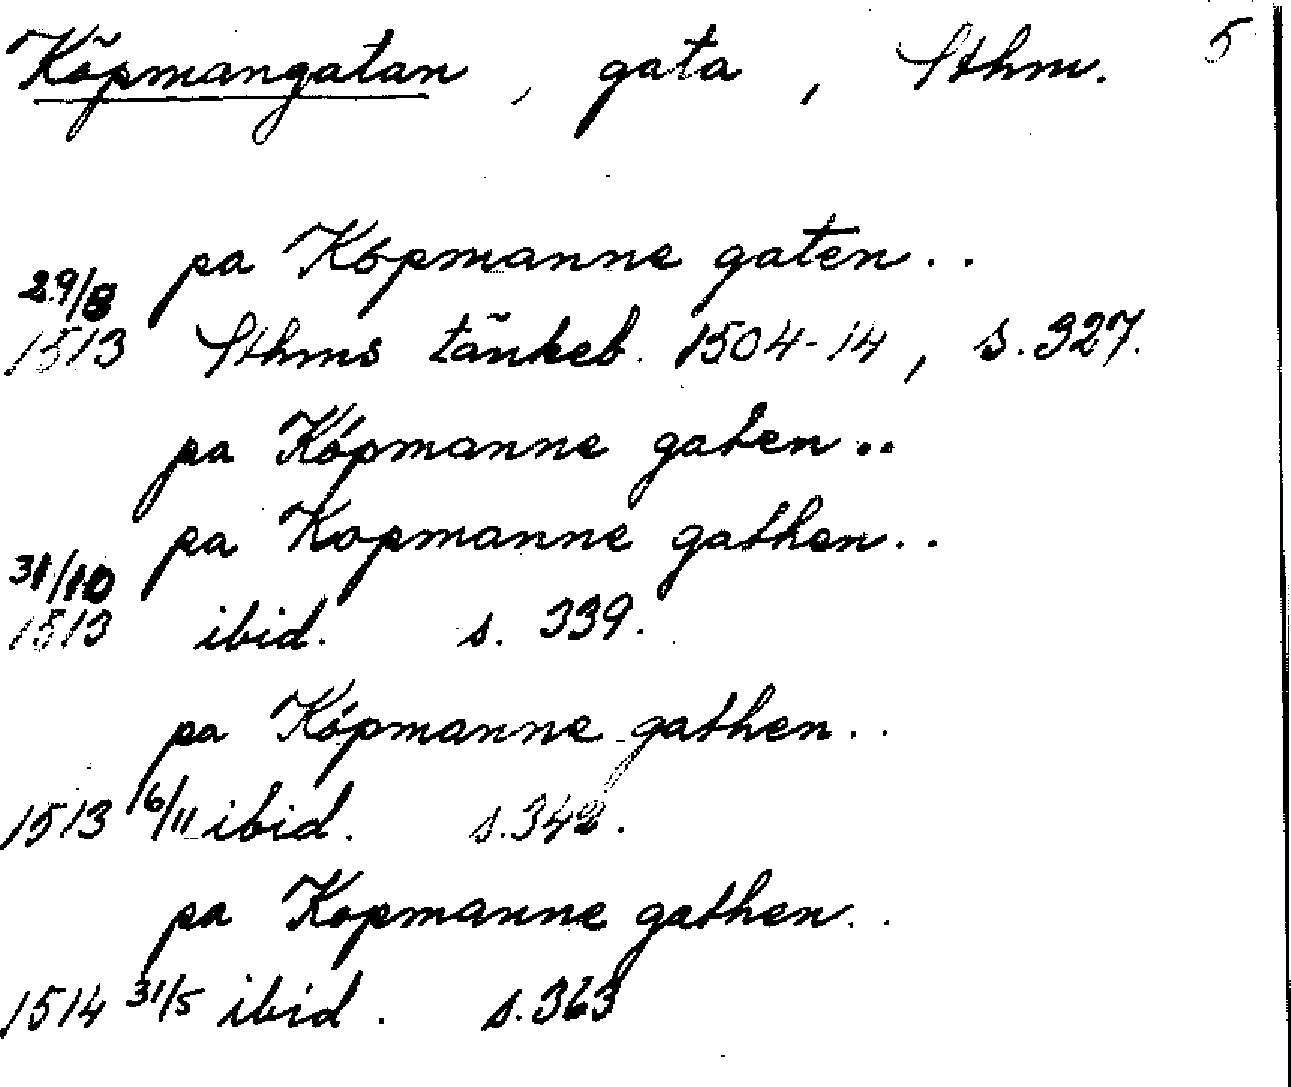 Köpmangatan, gata, Sthm. 5
pa Kópmanne gaten..
29/8
1513 Sthms tänkeb. 1504-14, s. 327.
pa Kópmanne gaten..
pa Kopmanne gathen..
31/10
1513 ibid. s. 339.
pa Kópmanne gathen..
1513 16/11 ibid. s. 342.
pa Kopmanne gathen..
1514 31/5 ibid. s. 363